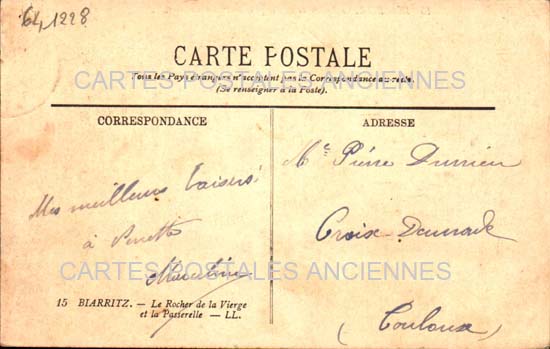 64, 1228
CARTE POSTALE
Tous les Pays étrangers n'acceptent pas la Correspondance au recto.
(Se renseigner à la Poste).
CARTES POSTALES ANCIENNES
CORRESPONDANCE
Mes meilleurs baisers
à
CARTES POSTALES ANCIENNES
15 BIARRITZ. — Le Rocher de la Vierge
et la Passerelle — LL.
ADRESSE
Pierre Durrieu
Croix Daurade
(Toulouse)